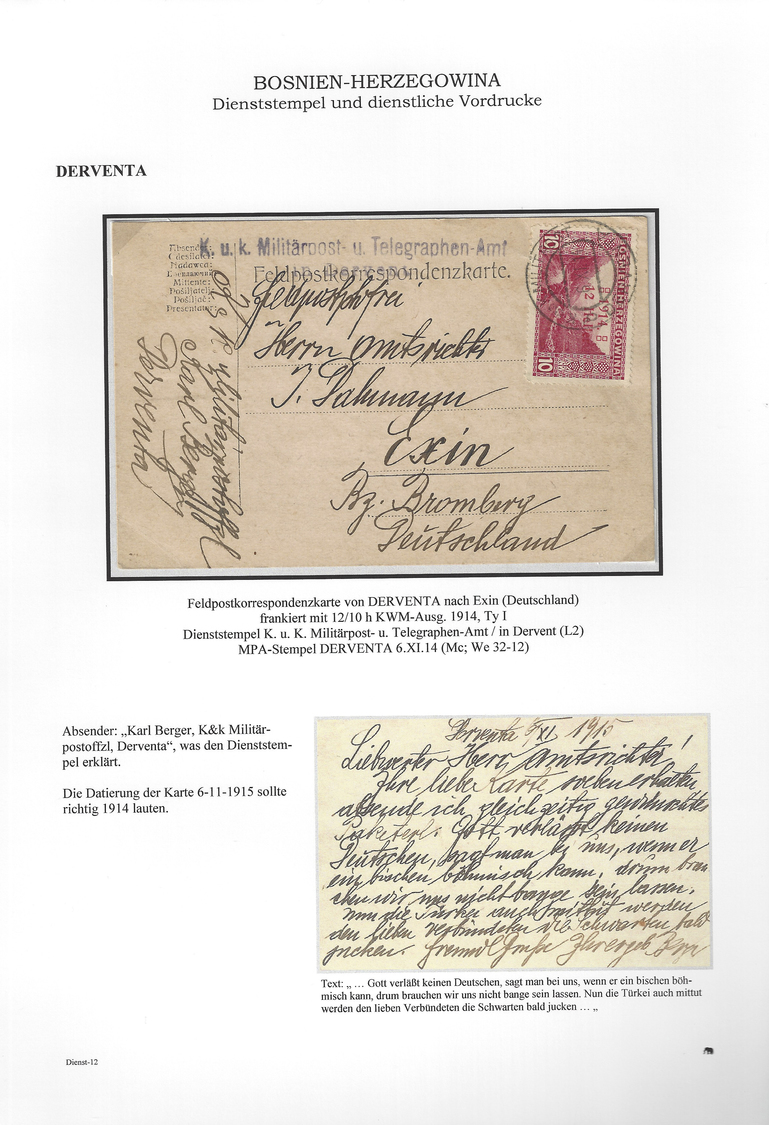 BOSNIEN-HERZEGOWINA
Dienststempel und dienstliche Vordrucke
DERVENTA
K. u. k. Militärpost- u. Telegraphen-Amt
Feldpostkorrespondenzkarte.
Absender:
Odesilatel:
Nadawca:
Mittente:
Pošiljatelj:
Pošiljač:
Presentator:
Feldpostfrei
Herrn Amtsrichter
J. Dahmann
Exin
Bz. Bromberg
Deutschland
Karl Berger
Derventa
10
BOSNIEN-HERZEGOWINA
1914
12 Hel
10
Feldpostkorrespondenzkarte von DERVENTA nach Exin (Deutschland)
frankiert mit 12/10 h KWM-Ausg. 1914, Ty I
Dienststempel K. u. K. Militärpost- u. Telegraphen-Amt / in Dervent (L2)
MPA-Stempel DERVENTA 6.XI.14 (Mc; We 32-12)
Absender: „Karl Berger, K&k Militär-
postoffzl, Derventa“, was den Dienststem-
pel erklärt.
Die Datierung der Karte 6-11-1915 sollte
richtig 1914 lauten.
Derventa 6/XI 1915
Liebwerter Herr Amtsrichter!
Ihre liebe Karte soeben erhalten
absende ich gleichzeitig gewünschtes
Paketerl. Gott verläßt keinen
Deutschen, sagt man bei uns, wenn er
ein bischen böhmisch kann, drum brau
chen wir uns nicht bange sein lassen.
Nun die Türkei auch mittut werden
den lieben Verbündeten die Schwarten bald
jucken.
Text: „ … Gott verläßt keinen Deutschen, sagt man bei uns, wenn er ein bischen böh-
misch kann, drum brauchen wir uns nicht bange sein lassen. Nun die Türkei auch mittut
werden den lieben Verbündeten die Schwarten bald jucken … „
Dienst-12